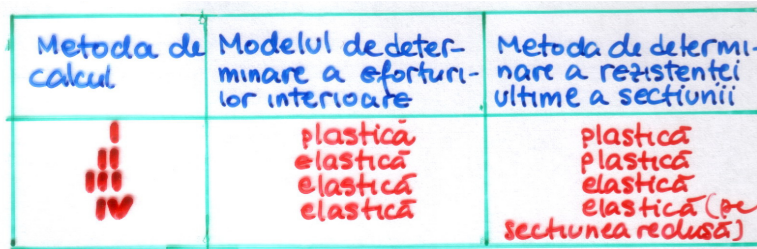 Metoda de calcul
Modelul de deter-
minare a eforturi-
lor interioare
Metoda de determi-
nare a rezistentei
ultime a sectiunii
I plastică plastică
II elastică plastică
III elastică elastică
IV elastică elastică (pe
sectiunea redusă)